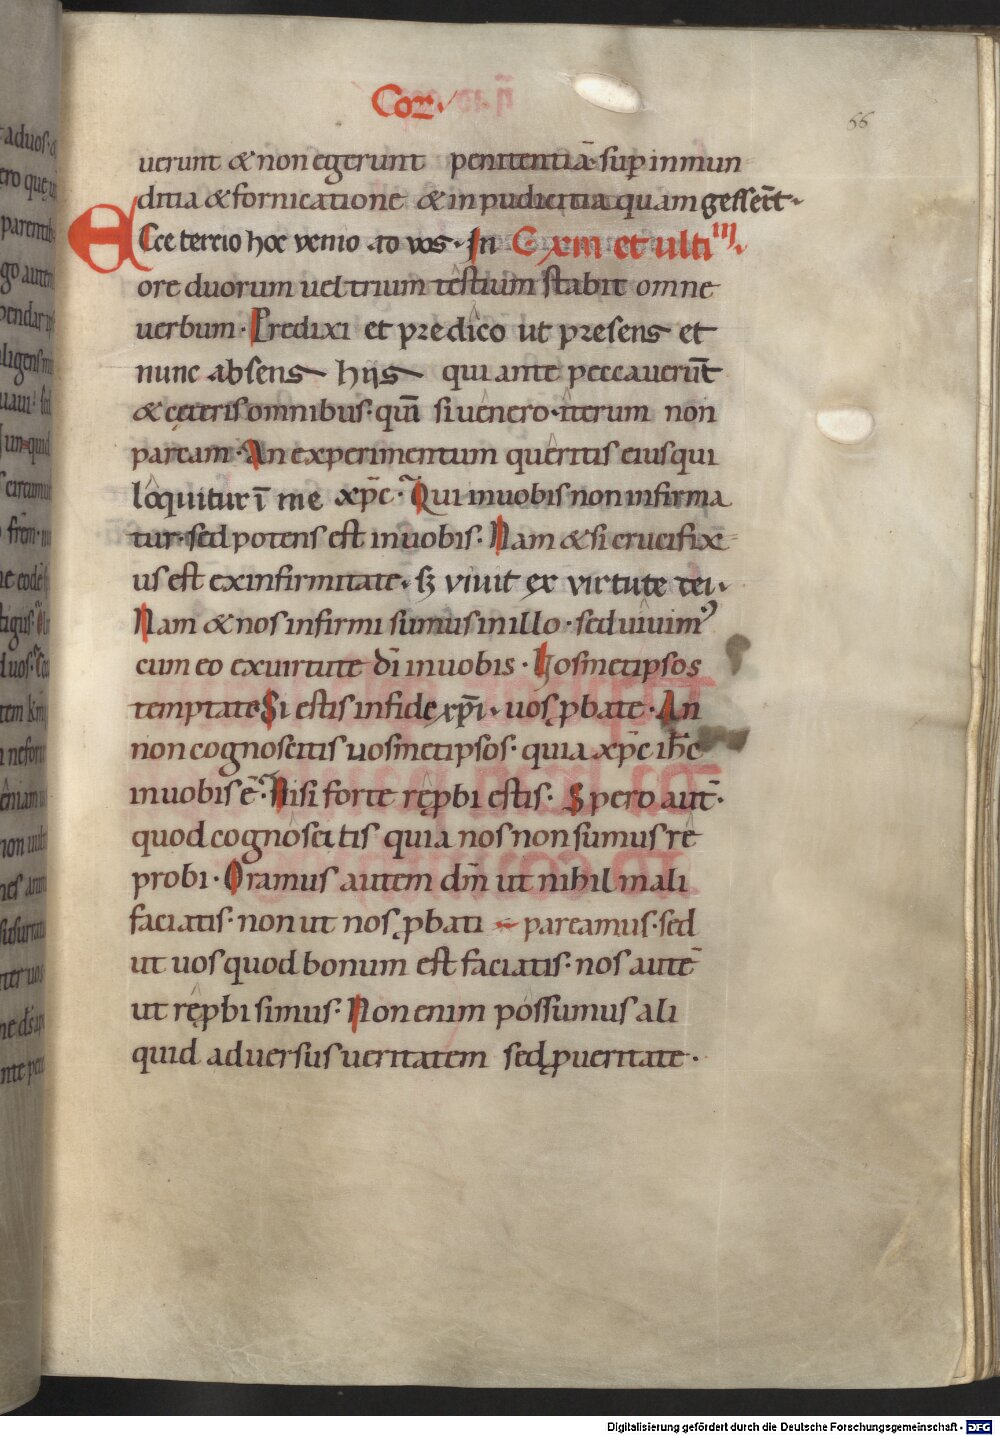 Cor
66
uerunt & non egerunt penitentiā· sup inmun
ditia & fornicatione & inpudicitia quam gesser̄t·
Ecce tercio hoc venio ad vos· In Cxm et ultim̄·
ore duorum uel trium testium stabit omne
uerbum· Predixi et predico ut presens et
nunc absens hijs qui ante peccauerūt
& ceteris omnibus· qm̄ si uenero· iterum non
parcam· An experimentum queritis eius qui
loquitur ī me xp̄c· Qui inuobis non infirma
tur· sed potens est inuobis· Nam & si crucifix
us est ex infirmitate· sꝫ viuit ex virtute dei·
Nam & nos infirmi sumus in illo· sed uiuimꝰ
cum eo ex uirtute dī inuobis· Uosmetipsos
temptate Si estis in fide xp̄i· uos ꝓbate· An
non cognoscitis uosmetipsos· quia xp̄c ih̄c
inuobis ē· Nisi forte reꝓbi estis· Spero aut̄·
quod cognoscitis quia nos non sumus re
probi· Oramus autem dm̄ ut nihil mali
faciatis· non ut nos ꝓbati pareamus· sed
ut uos quod bonum est faciatis· nos autē
ut reꝓbi simus· Non enim possumus ali
quid aduersus ueritatem sed ꝓ ueritate·
Digitalisierung gefördert durch die Deutsche Forschungsgemeinschaft - DFG